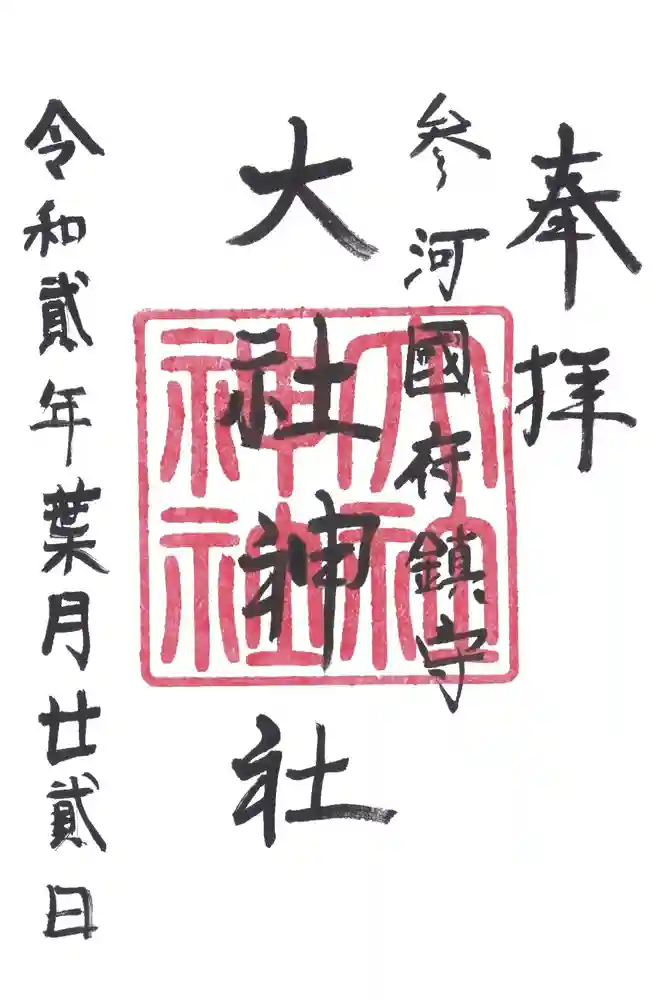 奉拝
参河國府鎮守
大社神社
大社神社
令和貳年葉月廿貳日